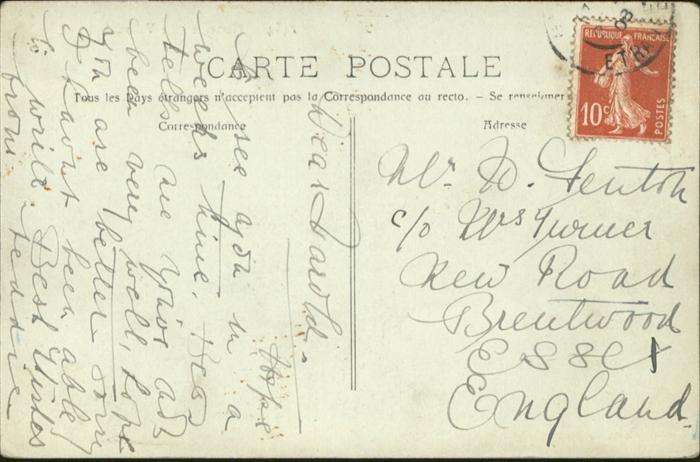 CARTE POSTALE
Tous les Pays étrangers n'acceptent pas la Correspondance au recto. - Se renseigner
Correspondance
Dear Harold.
Hope
to see you in a
weeks time. Has
tells me you've
been very well, hope
you are better. Sorry
I havnt been able
to write. Best Wishes
from Teddie
Adresse
Mr. H. Fenton
c/o Mrs Turner
New Road
Brentwood
ESSEX
England.
REPUBLIQUE FRANÇAISE
10c
POSTES